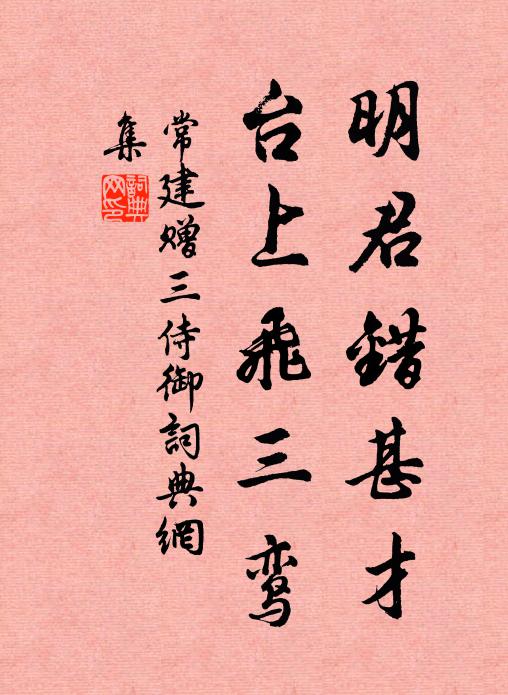 明君错甚才
台上飞三鸾
常建赠三侍御詞典網
集
詞典
网印